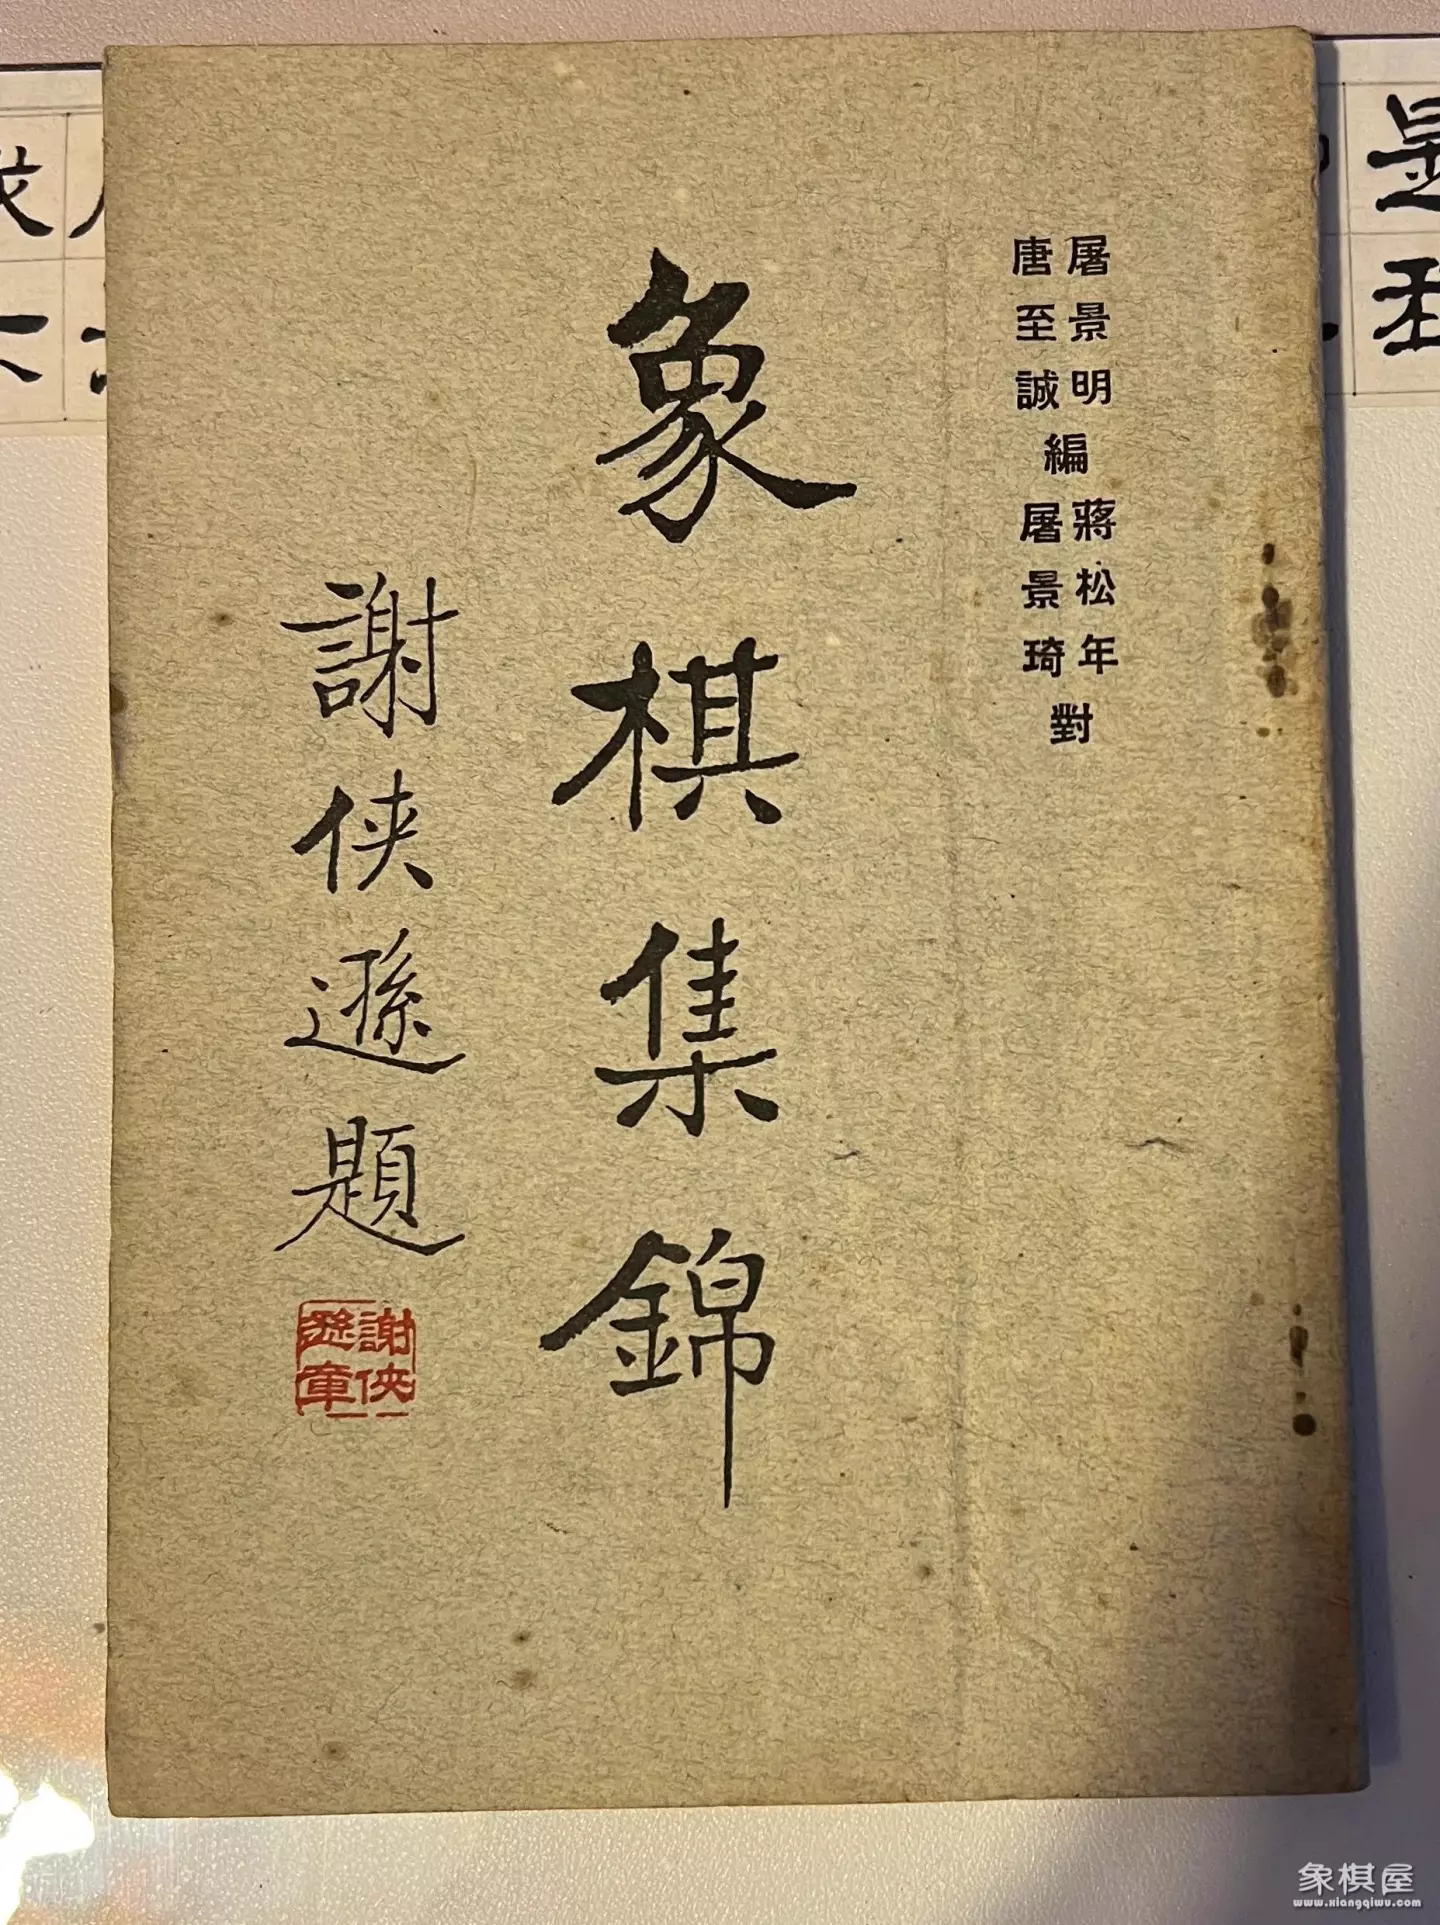 屠景明
唐至誠
編
蔣松年
屠景琦
對
象棋集錦
謝侠遜題
謝侠
遜章
是
象棋屋
www.xiangqiwu.com